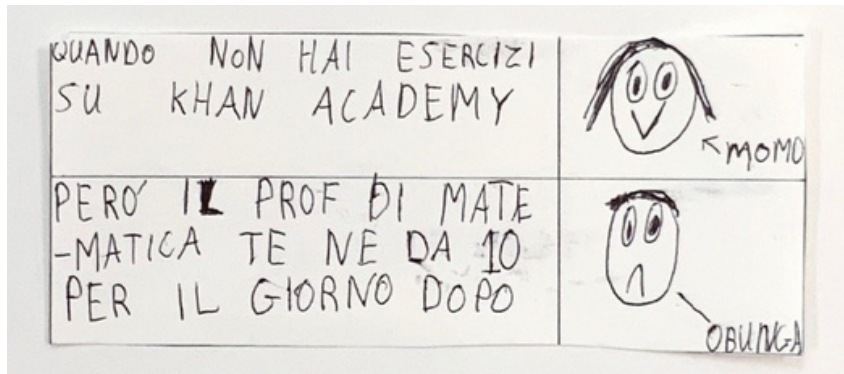 QUANDO NON HAI ESERCIZI
SU KHAN ACADEMY
MOMO
PERÓ IL PROF DI MATE
-MATICA TE NE DA 10
PER IL GIORNO DOPO
OBUNGA